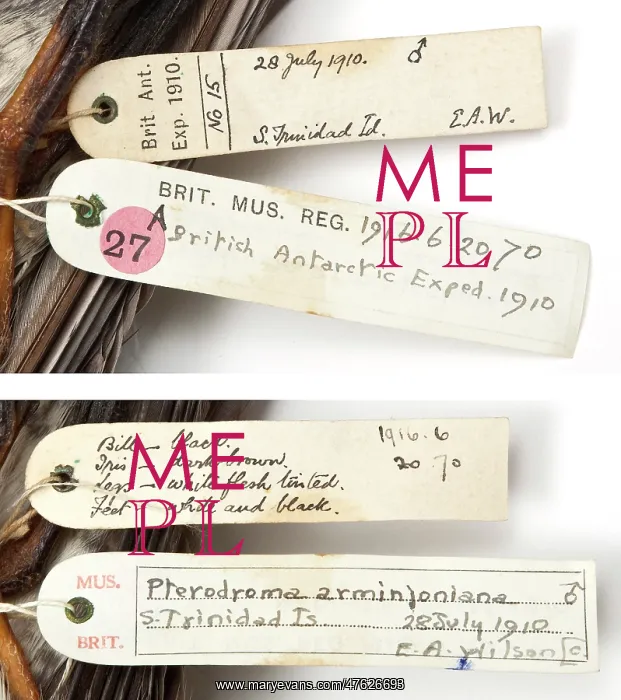 Brit. Ant.
Exp. 1910.
No 15
28 July 1910. ♂
S. Trinidad Id. E.A.W.
BRIT. MUS. REG. 1916 6 20 70
A
27
British Antarctic Exped. 1910
ME
PL
Bill — black.
Iris — dark brown.
Legs — white flesh tinted.
Feet — white and black.
1916.6
20.70
ME
PL
MUS.
BRIT.
Pterodroma arminjoniana ♂
S. Trinidad Is. 28 July 1910
E.A. Wilson
www.maryevans.com/47626693